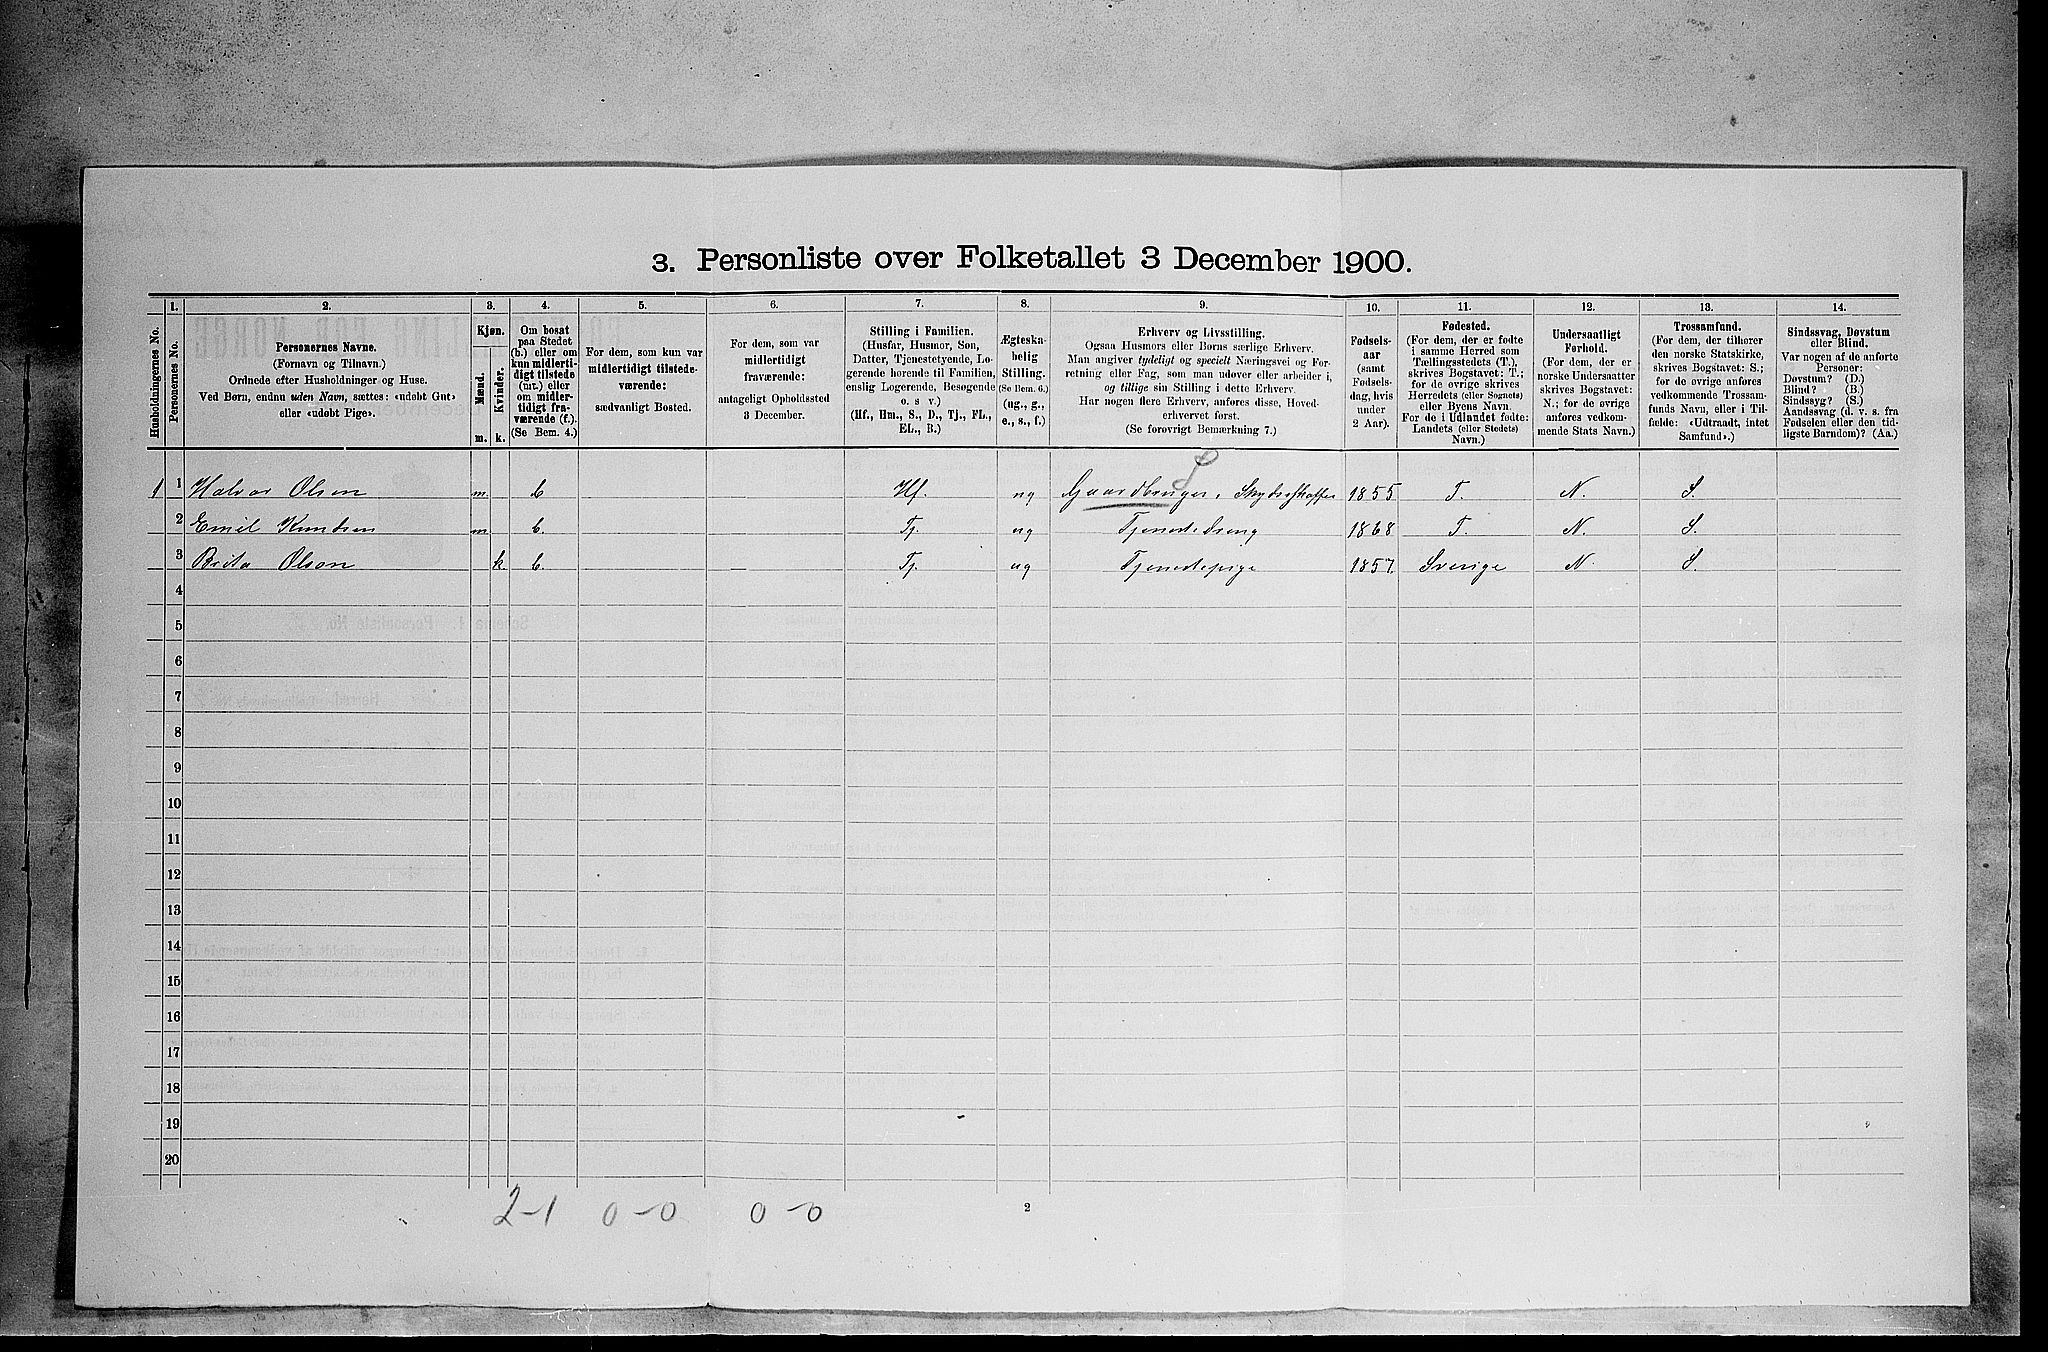 3. Personliste over Folketallet 3 December 1900.
Husholdningernes No.
1.
Personernes No.
2.
Personernes Navne.
(Fornavn og Tilnavn.)
Ordnede efter Husholdninger og Huse.
Ved Børn, endnu uden Navn, sættes: «udøbt Gut»
eller «udøbt Pige».
3.
Kjøn.
Mænd.
Kvinder.
m. k.
4.
Om bosat
paa Stedet
(b.) eller om
kun midlerti-
digt tilstede
(mt.) eller
om midler-
tidigt fra-
værende (f.).
(Se Bem. 4.)
5.
For dem, som kun var
midlertidigt tilstede-
værende:
sædvanligt Bosted.
6.
For dem, som var
midlertidigt
fraværende:
antageligt Opholdssted
3 December.
7.
Stilling i Familien.
(Husfar, Husmor, Søn,
Datter, Tjenestetyende, Lo-
gerende hørende til Familien,
enslig Logerende, Besøgende
o. s v.)
(Hf., Hm., S., D., Tj., FL.,
EL., B.)
8.
Ægteska-
belig
Stilling.
(Se Bem. 6.)
(ug., g.,
e., s., f.)
9.
Erhverv og Livsstilling.
Ogsaa Husmors eller Børns særlige Erhverv.
Man angiver tydeligt og specielt Næringsvei og For-
retning eller Fag, som man udøver eller arbeider i,
og tillige sin Stilling i dette Erhverv.
Har nogen flere Erhverv, anføres disse, Hoved-
erhvervet først.
(Se forøvrigt Bemærkning 7.)
10.
Fødsels-
aar
(samt
Fødsels-
dag, hvis
under
2 Aar).
11.
Fødested.
(For dem, der er fødte
i samme Herred som
Tællingsstedets (T.),
skrives Bogstavet: T.;
for de øvrige skrives
Herredets (eller Sognets)
eller Byens Navn.
For de i Udlandet fødte:
Landets (eller Stedets)
Navn.)
12.
Undersaatligt
Forhold.
(For dem, der er
norske Undersaatter
skrives Bogstavet:
N.; for de øvrige
anføres vedkom-
mende Stats Navn.)
13.
Trossamfund.
(For dem, der tilhører
den norske Statskirke,
skrives Bogstavet: S.;
for de øvrige anføres
vedkommende Trossam-
funds Navn, eller i Til-
fælde: «Udtraadt, intet
Samfund».)
14.
Sindssvag, Døvstum
eller Blind.
Var nogen af de anførte
Personer:
Døvstum? (D.)
Blind? (B.)
Sindssyg? (S.)
Aandssvag (d. v. s. fra
Fødselen eller den tid-
ligste Barndom)? (Aa.)
S
1 1 Halvor Olsen m. b Hf. ug Gaardbruger, Skydsskaffer 1855 T. N. S.
2 Emil Knudsen m b. Tj. ug Tjenestedreng 1868 T. N. S.
3 Brita Olsen k. b. — Tj. ug Tjenestepige 1857. Sverige N. S.
4
5
6
7
8
9
10
11
12
13
14
15
16
17
18
19
20
2-1 0-0 0-0
2